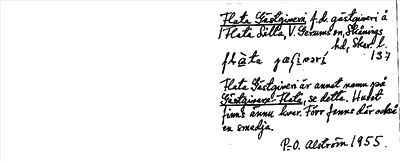 Flata Gästgiveri f.d. gästgiveri å
Flata Silta, V. Gerums sn, Skånings
hd, Skar. l.
137
Flata Gästgiveri är annat namn på
Gästgivare-Flata, se detta. Huset
finns ännu kvar. Förr fanns där också
en smedja.
P-O. Alström 1955.